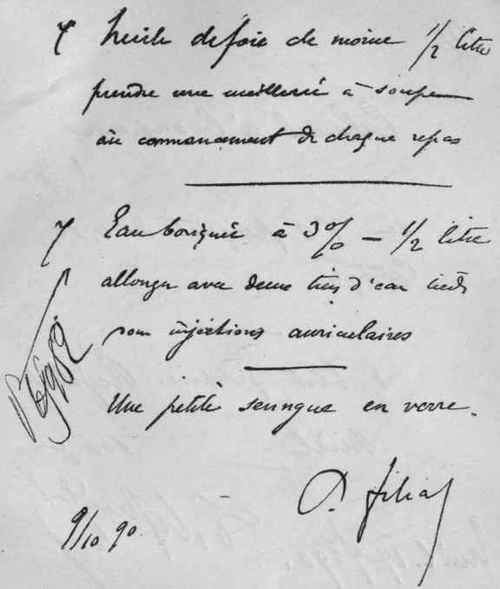 huile de foie de morue 1/2 litre
prendre une cuillerée à soupe
au commencement de chaque repas
Eau boriquée à 3% — 1/2 litre
allonger avec deux tiers d'eau tiède
pour injections auriculaires
Une petite seringue en verre.
9/10 90